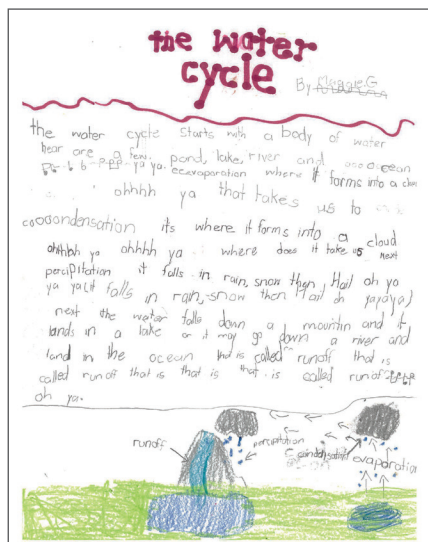 the water
cycle
By Maggie.G
the water cycle starts with a body of water
hear are a few pond, lake, river and ooocean
ya ya. eeavaporation where it forms into a clou
ohhhh ya that takes us to
coooondensation its where it forms into a cloud
ohhhhh ya ohhhh ya where does it take us next
percipitation it falls in rain, snow then Hail oh yo
ya ya (it falls in rain, snow then Hail oh yayaya)
next the water falls down a mountin and it
lands in a lake or it may go down a river and
land in the ocean that is called runoff that is
called runoff that is that is that is called runoff
oh ya.
runoff
percipitation
condensation
evaporation